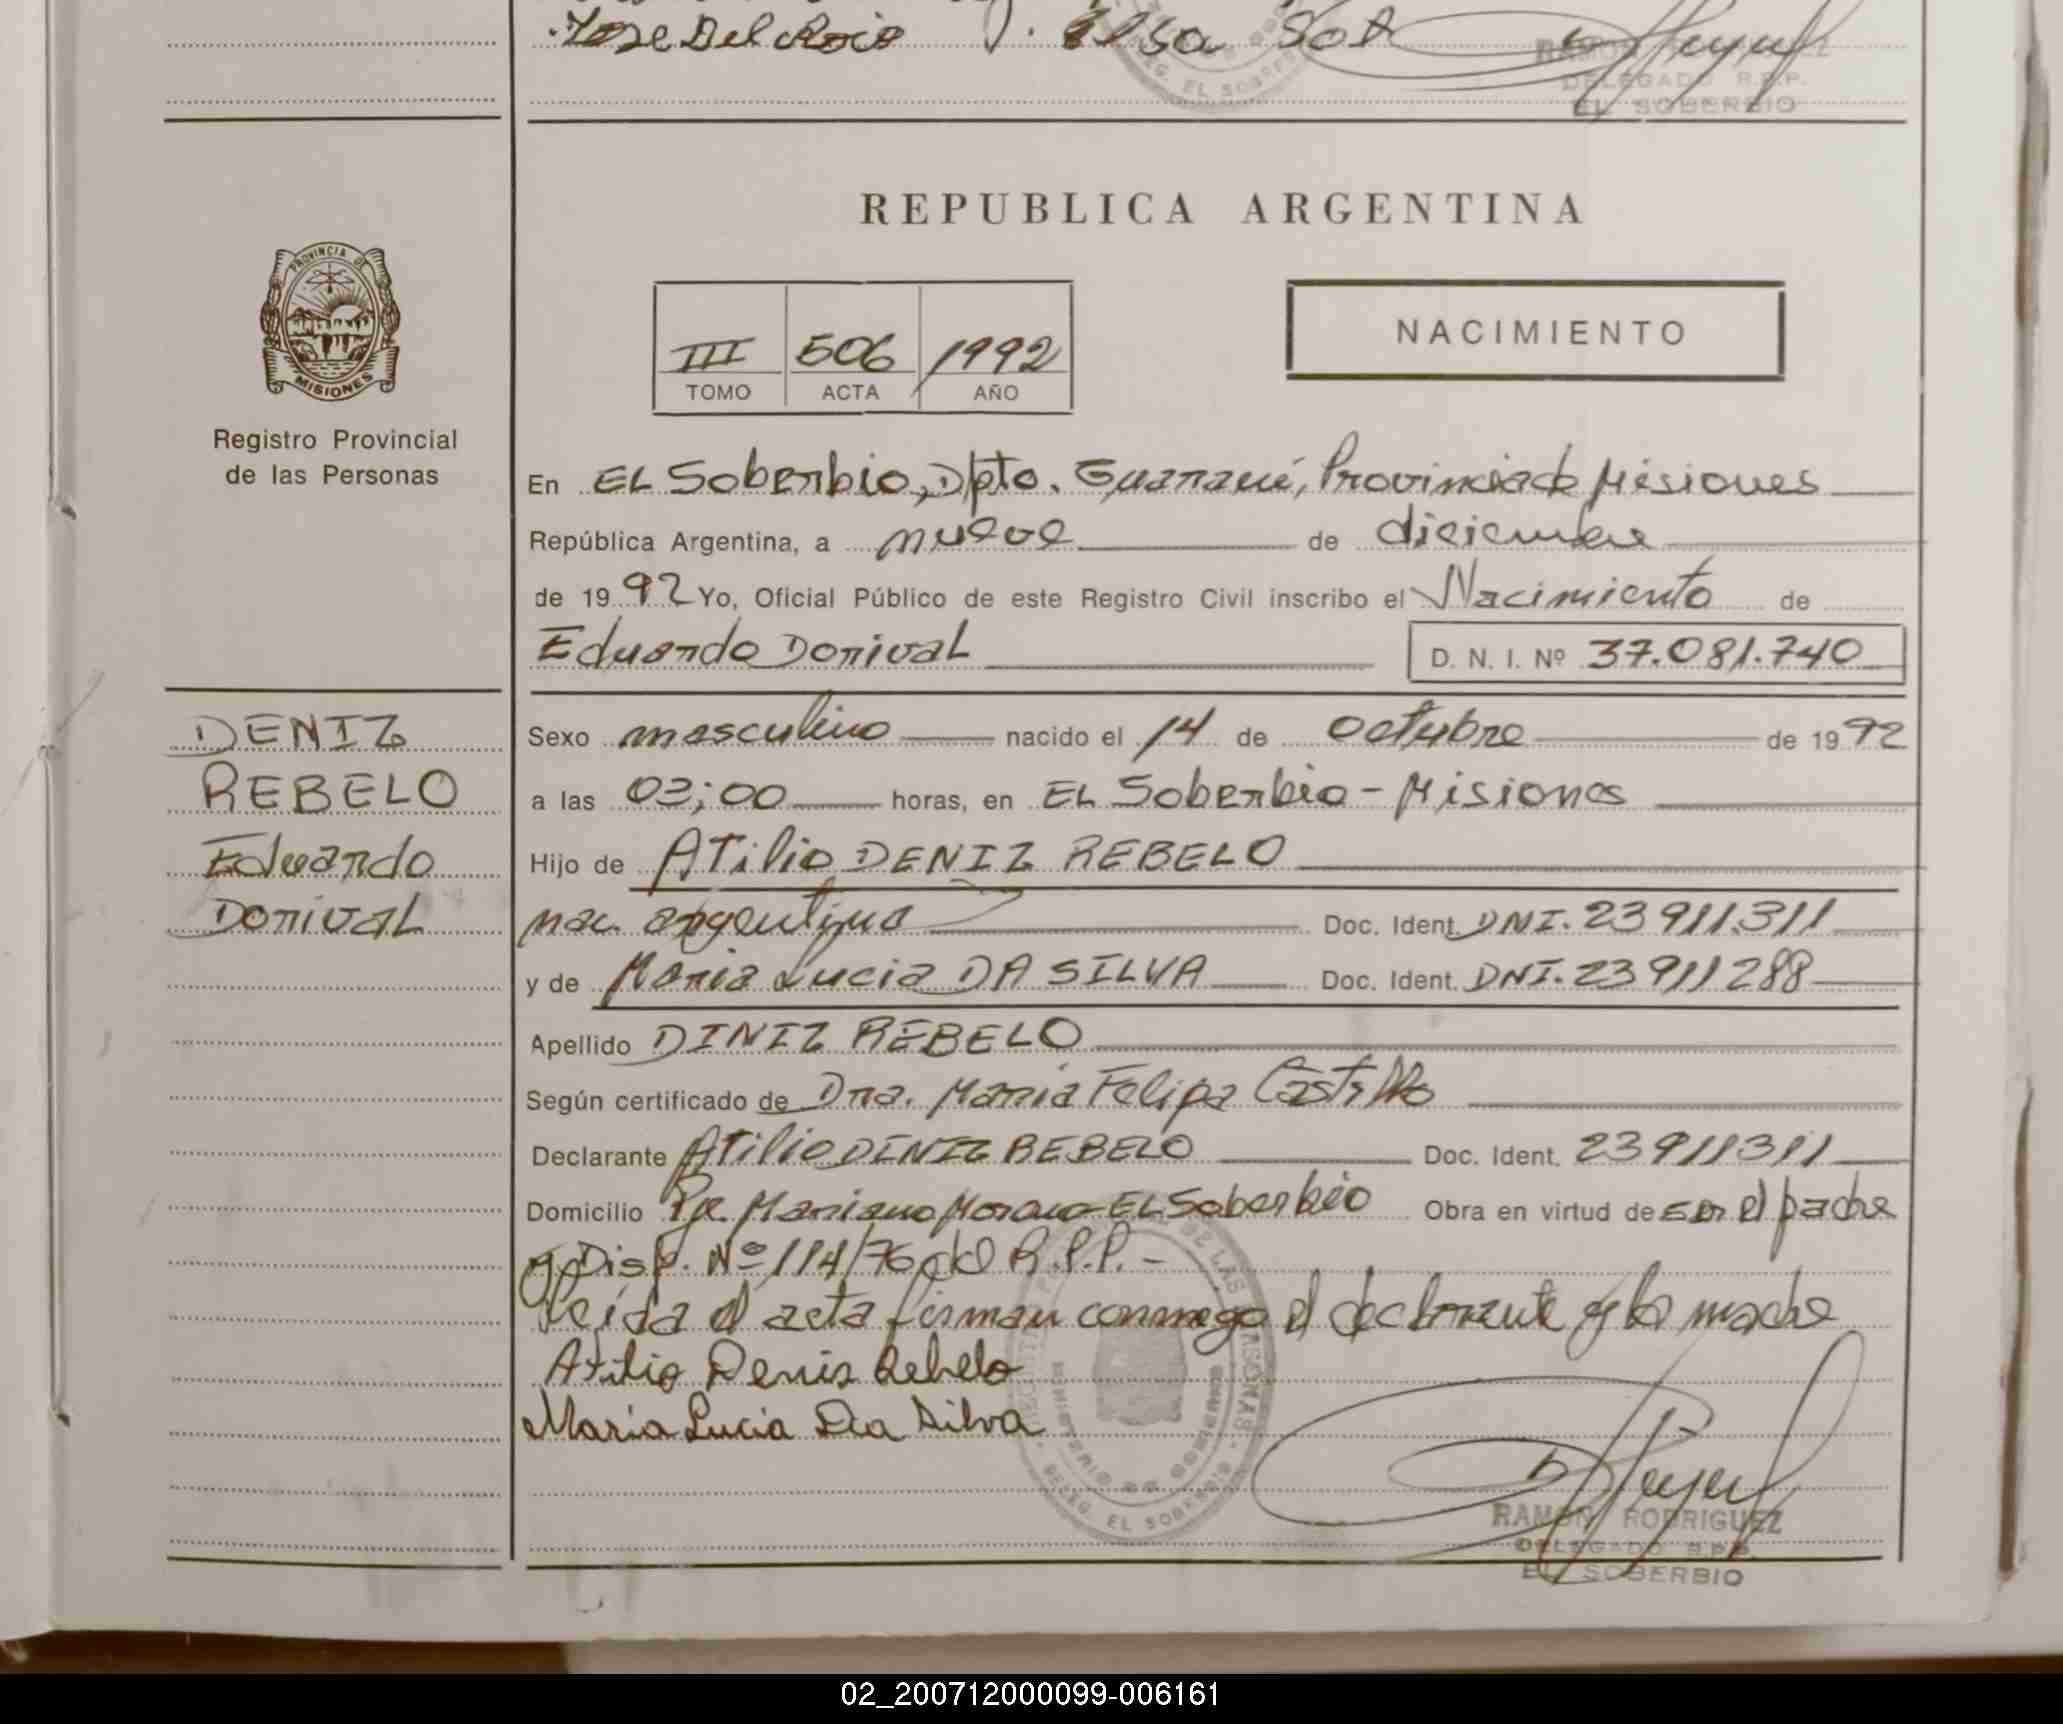 Jose Del Rocio Elsa Sot
DELEGADO R.P.P.
EL SOBERBIO
REPUBLICA ARGENTINA
PROVINCIA DE
MISIONES
Registro Provincial
de las Personas
III 506 1992
TOMO ACTA AÑO
NACIMIENTO
En EL Soberbio, Dpto. Guaraní, Provincia de Misiones
República Argentina, a nueve de diciembre
de 1992 Yo, Oficial Público de este Registro Civil inscribo el Nacimiento de
Eduardo Dorival D. N. I. Nº 37.081.740
DENIZ
REBELO
Eduardo
Dorival
Sexo masculino nacido el 14 de octubre de 1992
a las 03;00 horas, en EL Soberbio - Misiones
Hijo de Atilio DENIZ REBELO
nac. argentina Doc. Ident. DNI. 23911311
y de Maria Lucia DA SILVA Doc. Ident. DNI. 23911288
Apellido DINIZ REBELO
Según certificado de Dra. Maria Felipa Castillo
Declarante Atilio DENIZ REBELO Doc. Ident. 23911311
Domicilio Pje. Mariano Moreno EL Soberbio Obra en virtud de ser el padre
y Disp. Nº 114/76 del R.P.P. -
Leida el acta firman conmigo el declarante y la madre
Atilio Denis Rebelo
Maria Lucia Da Silva
DELEG. EL SOBERBIO
RAMON RODRIGUEZ
DELEGADO R.P.P.
EL SOBERBIO
02_200712000099-006161